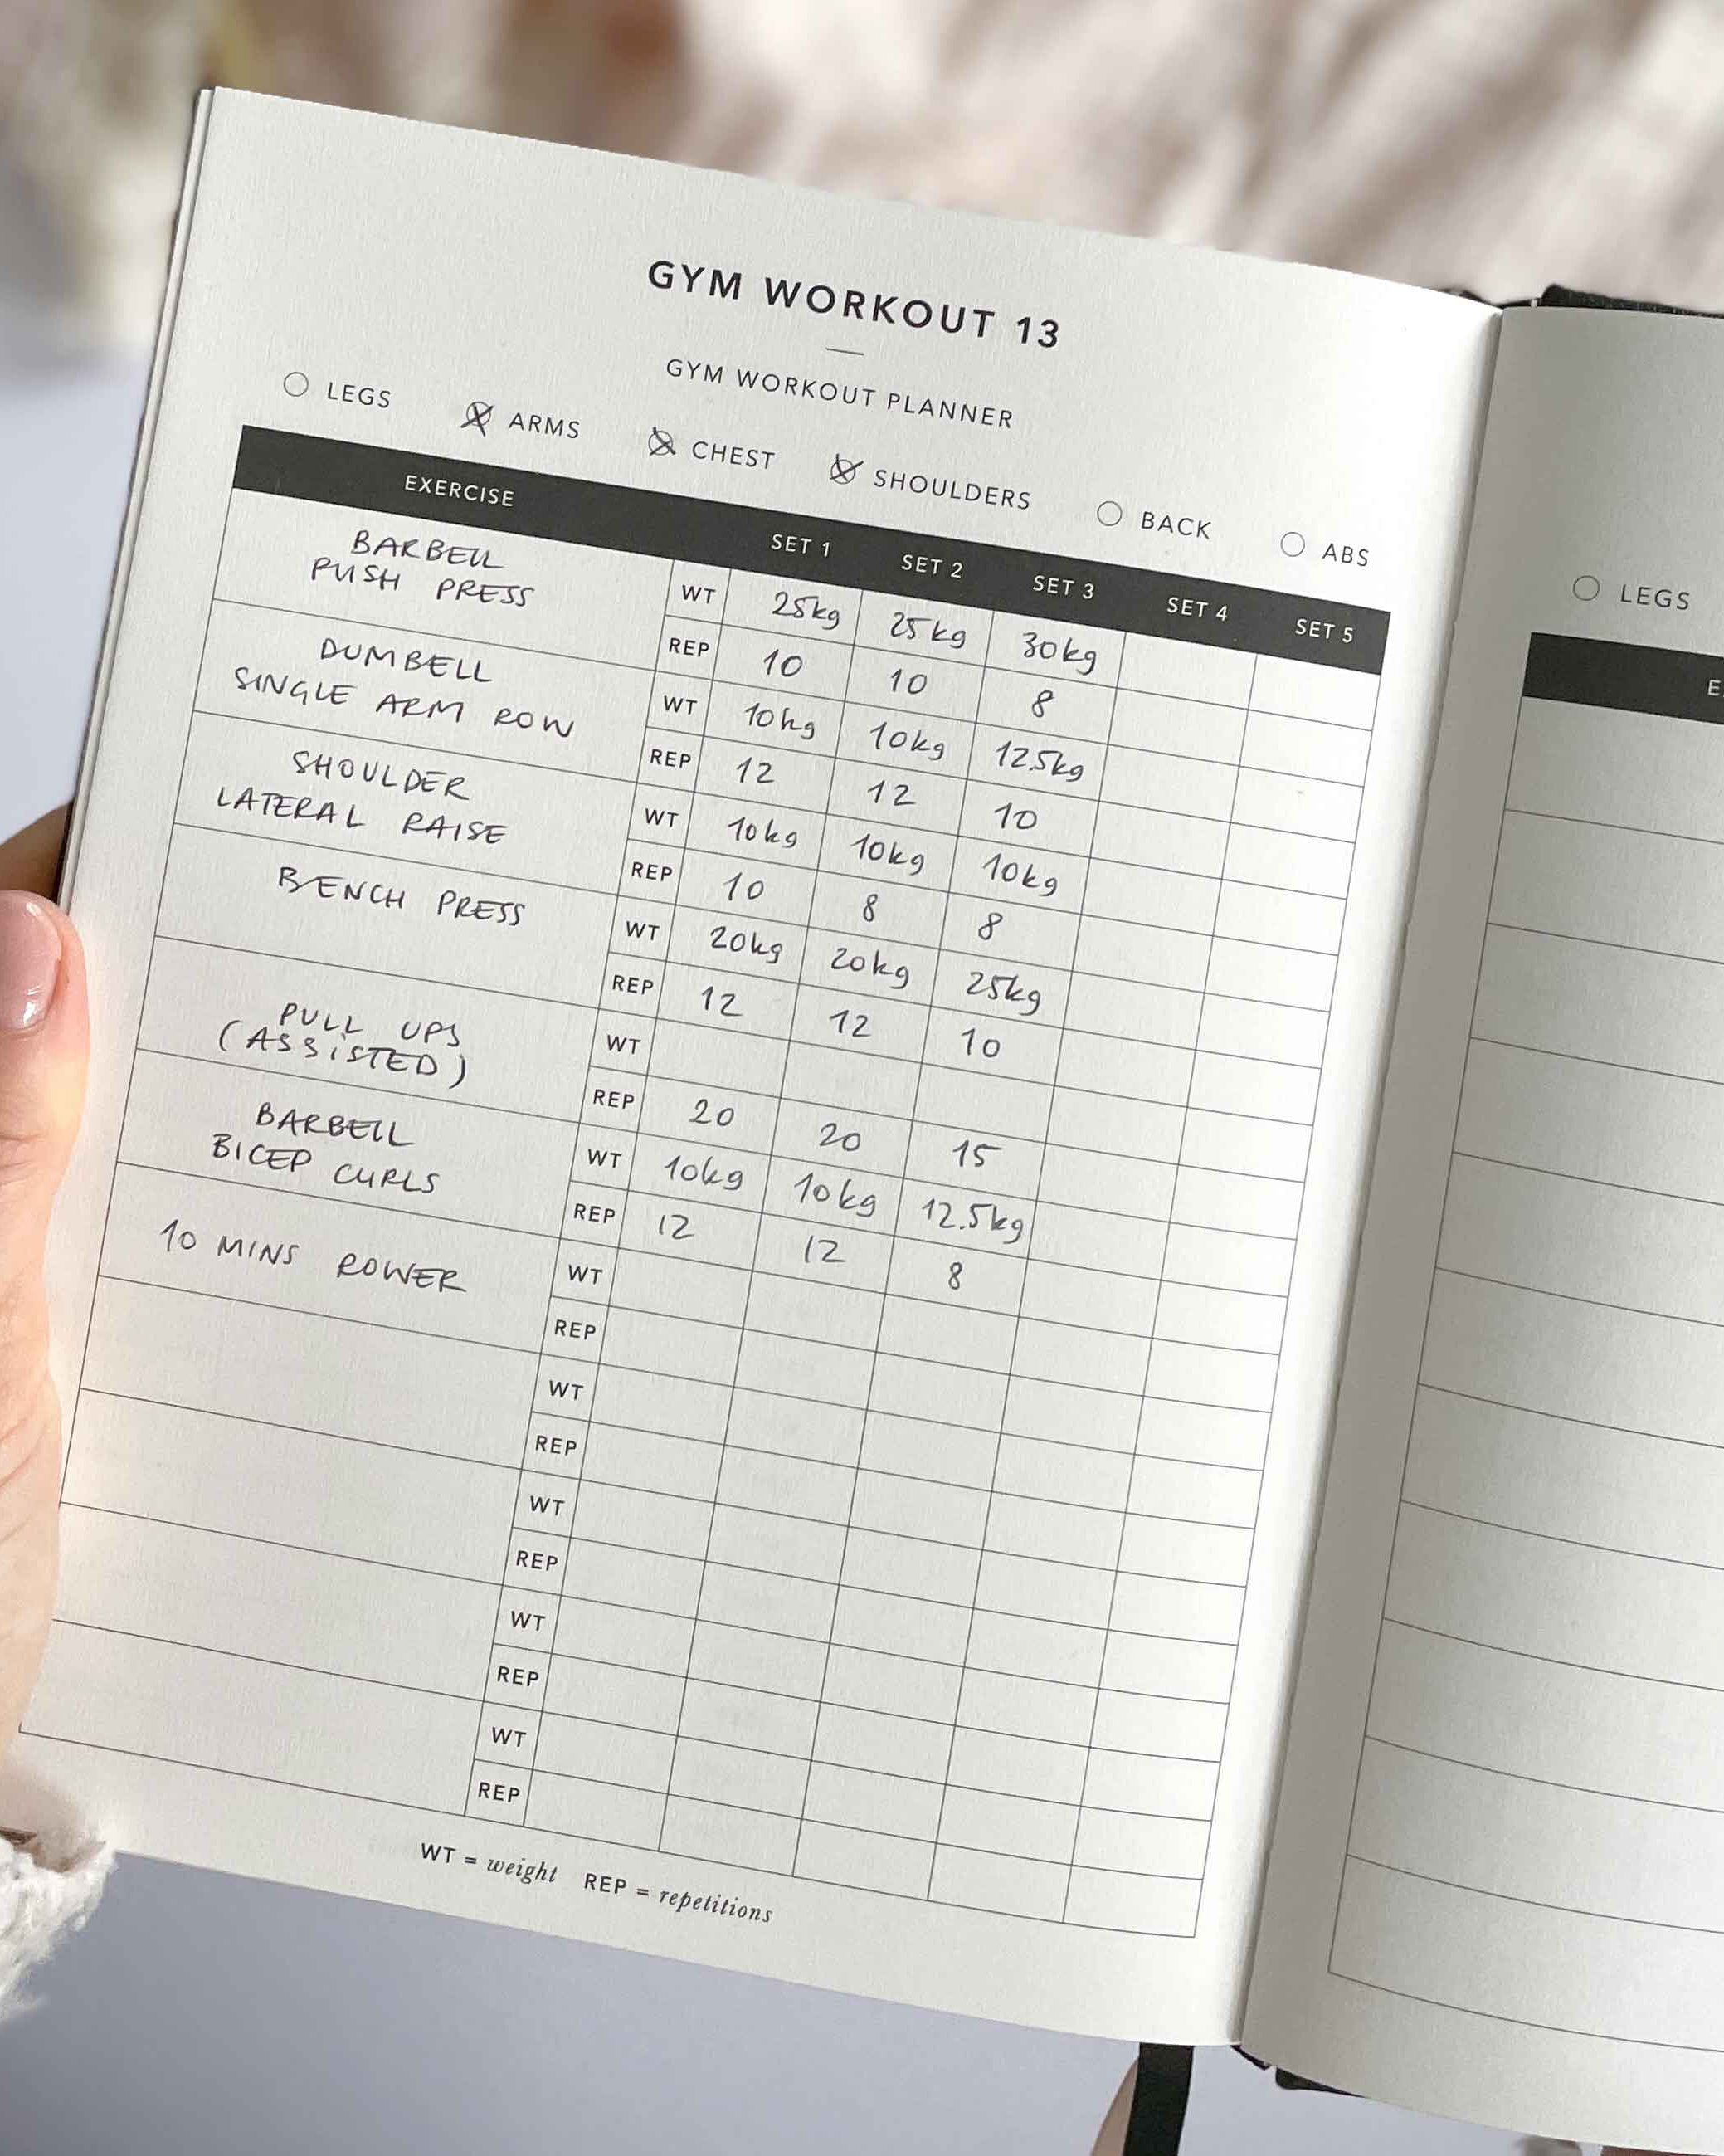 GYM WORKOUT 13
GYM WORKOUT PLANNER
LEGS ARMS CHEST SHOULDERS BACK ABS
EXERCISE SET 1 SET 2 SET 3 SET 4 SET 5
BARBELL
PUSH PRESS
WT 25kg 25kg 30kg
REP 10 10 8
DUMBELL
SINGLE ARM ROW
WT 10kg 10kg 12.5kg
REP 12 12 10
SHOULDER
LATERAL RAISE
WT 10kg 10kg 10kg
REP 10 8 8
BENCH PRESS
WT 20kg 20kg 25kg
REP 12 12 10
PULL UPS
(ASSISTED)
WT
REP 20 20 15
BARBELL
BICEP CURLS
WT 10kg 10kg 12.5kg
REP 12 12 8
10 MINS ROWER
WT
REP
WT
REP
WT
REP
WT
REP
WT
REP
WT = weight REP = repetitions
LEGS
E